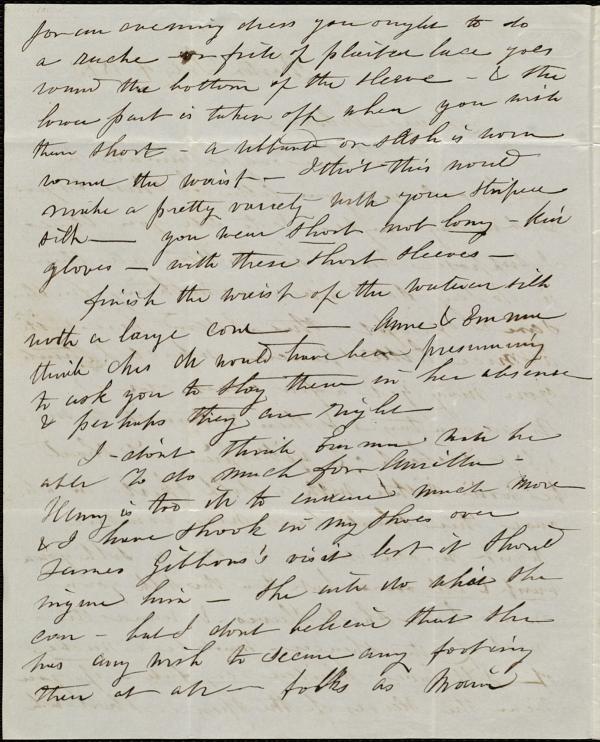 for an evening dress you ought to do
a ruche or frill of plaited lace goes
round the bottom of the sleeve - & the
lower part is taken off when you wish
them short - a ribband or sash is worn
round the waist - I tho't this would
make a pretty variety with your striped
silk — you wear short not long - kid
gloves - with these short sleeves -
finish the waist of the watered silk
with a large cord — Anne & Emma
think it would have been presuming
to ask you to stay there in her absence
& perhaps they are right
I don't think Emma will be
able to do much for
Henry is too ill to endure much more
& I have shook in my shoes over
James Gibbons's visit lest it should
injure him - She will do what she
can - but I dont believe that she
has any wish to secure any footing
there at all - folks as